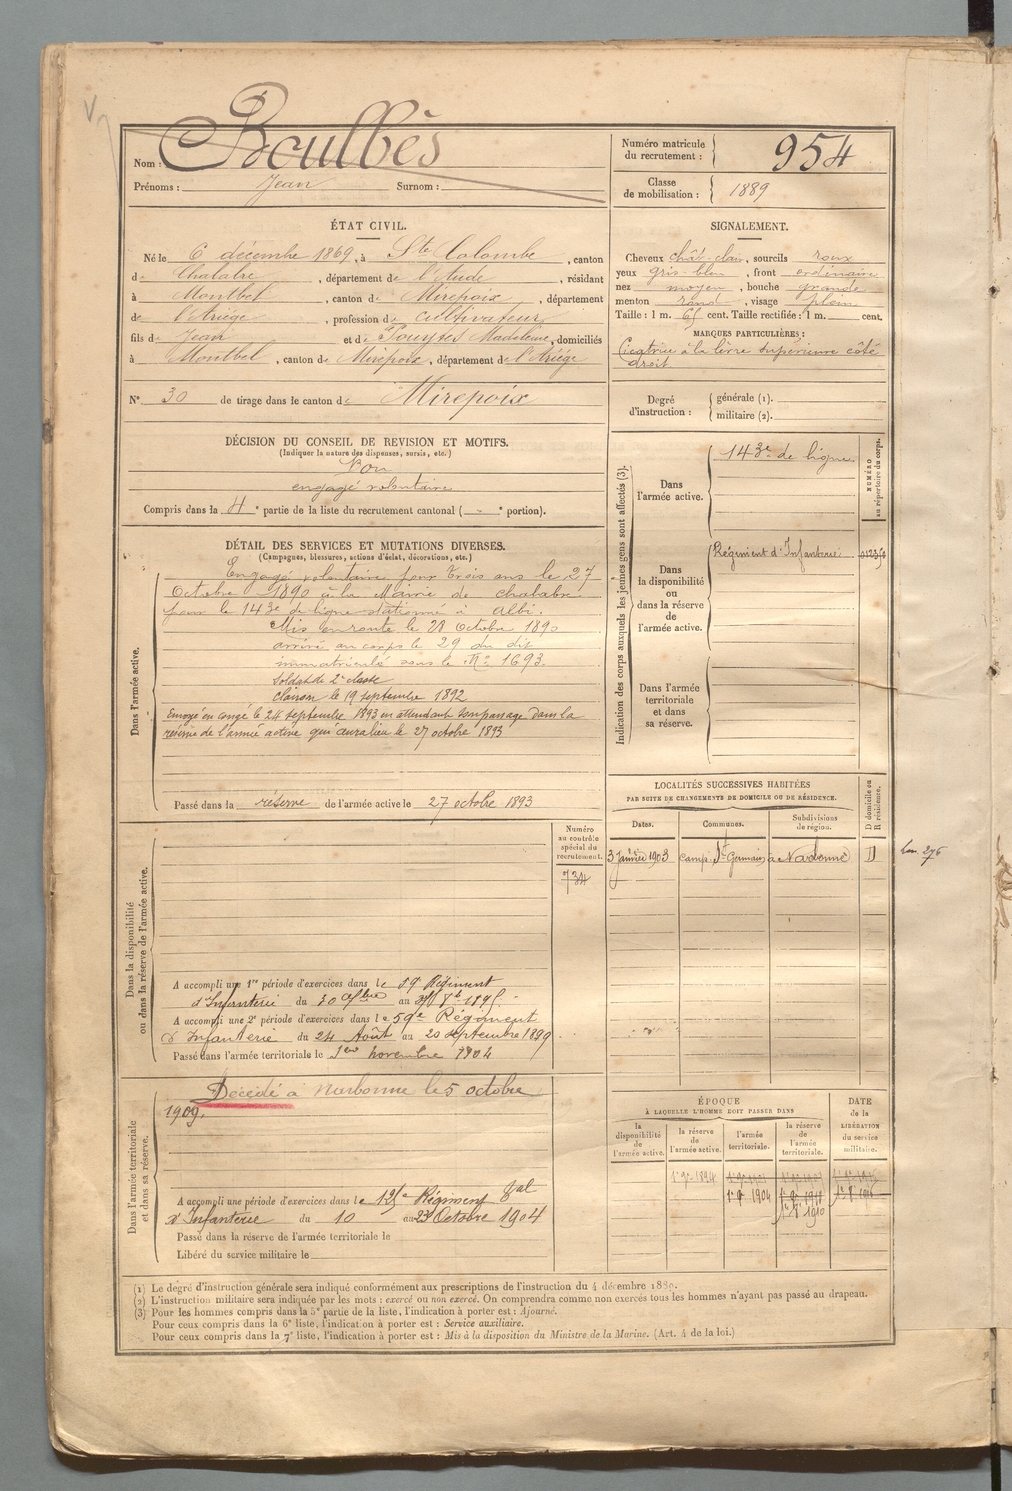 Nom : Boulbès
Prénoms : Jean Surnom :
Numéro matricule du recrutement : 954
Classe de mobilisation : 1889
ÉTAT CIVIL.
Né le 6 décembre 1869, à Ste Colombe, canton
de Chalabre, département de l'Aude, résidant
à Montbel, canton de Mirepoix, département
de l'Ariége, profession de cultivateur
fils de Jean et de Pouytes Madeleine, domiciliés
à Montbel, canton de Mirepoix, département de l'Ariége
N° 30 de tirage dans le canton de Mirepoix
SIGNALEMENT.
Cheveux chât-clair, sourcils roux
yeux gris-bleu, front ordinaire
nez moyen, bouche grande
menton rond, visage plein
Taille : 1 m. 65 cent. Taille rectifiée : 1 m. cent.
MARQUES PARTICULIÈRES :
Cicatrice à la lèvre supérieure côté
droit
Degré d'instruction : générale (1).
militaire (2).
DÉCISION DU CONSEIL DE REVISION ET MOTIFS.
(Indiquer la nature des dispenses, sursis, etc.)
Bon
engagé volontaire
Compris dans la 4e partie de la liste du recrutement cantonal ( - e portion).
DÉTAIL DES SERVICES ET MUTATIONS DIVERSES.
(Campagnes, blessures, actions d'éclat, décorations, etc.)
Dans l'armée active.
Engagé volontaire pour trois ans le 27
Octobre 1890 à la Mairie de Chalabre
pour le 143e de ligne stationné à Albi.
Mis en route le 28 Octobre 1890
arrivé au corps le 29 du dit
immatriculé sous le N° 1693.
Soldat de 2e classe
Clairon le 19 septembre 1892
Envoyé en congé le 24 septembre 1893 en attendant son passage dans la
réserve de l'armée active qui aura lieu le 27 octobre 1893
Passé dans la réserve de l'armée active le 27 octobre 1893
Indication des corps auxquels les jeunes gens sont affectés (3).
NUMÉRO au répertoire du corps.
Dans l'armée active.
143e de ligne
Dans la disponibilité ou dans la réserve de l'armée active.
Régiment d'Infanterie
Dans l'armée territoriale et dans sa réserve.
LOCALITÉS SUCCESSIVES HABITÉES
PAR SUITE DE CHANGEMENTS DE DOMICILE OU DE RÉSIDENCE.
Dates. Communes. Subdivisions de région. D domicile ou R résidence.
3 janvier 1903 Camp. St Germain à Narbonne D
Dans la disponibilité ou dans la réserve de l'armée active.
Numéro au contrôle spécial du recrutement.
734
A accompli une 1re période d'exercices dans le
d'Infanterie du au
A accompli une 2e période d'exercices dans le 59e Régiment
d'Infanterie du 24 Août au 20 septembre 1899
Passé dans l'armée territoriale le 1er novembre 1904
Dans l'armée territoriale et dans sa réserve.
Décédé à Narbonne le 5 octobre
1909.
A accompli une période d'exercices dans le Régiment
d'Infanterie du 10 au 23 Octobre 1904
Passé dans la réserve de l'armée territoriale le
Libéré du service militaire le
ÉPOQUE
À LAQUELLE L'HOMME DOIT PASSER DANS
la disponibilité de l'armée active.
la réserve de l'armée active.
l'armée territoriale.
la réserve de l'armée territoriale.
DATE de la LIBÉRATION du service militaire.
(1) Le degré d'instruction générale sera indiqué conformément aux prescriptions de l'instruction du 4 décembre 1889.
(2) L'instruction militaire sera indiquée par les mots : exercé ou non exercé. On comprendra comme non exercés tous les hommes n'ayant pas passé au drapeau.
(3) Pour les hommes compris dans la 5e partie de la liste, l'indication à porter est : Ajourné.
Pour ceux compris dans la 6e liste, l'indication à porter est : Service auxiliaire.
Pour ceux compris dans la 7e liste, l'indication à porter est : Mis à la disposition du Ministre de la Marine. (Art. 4 de la loi.)